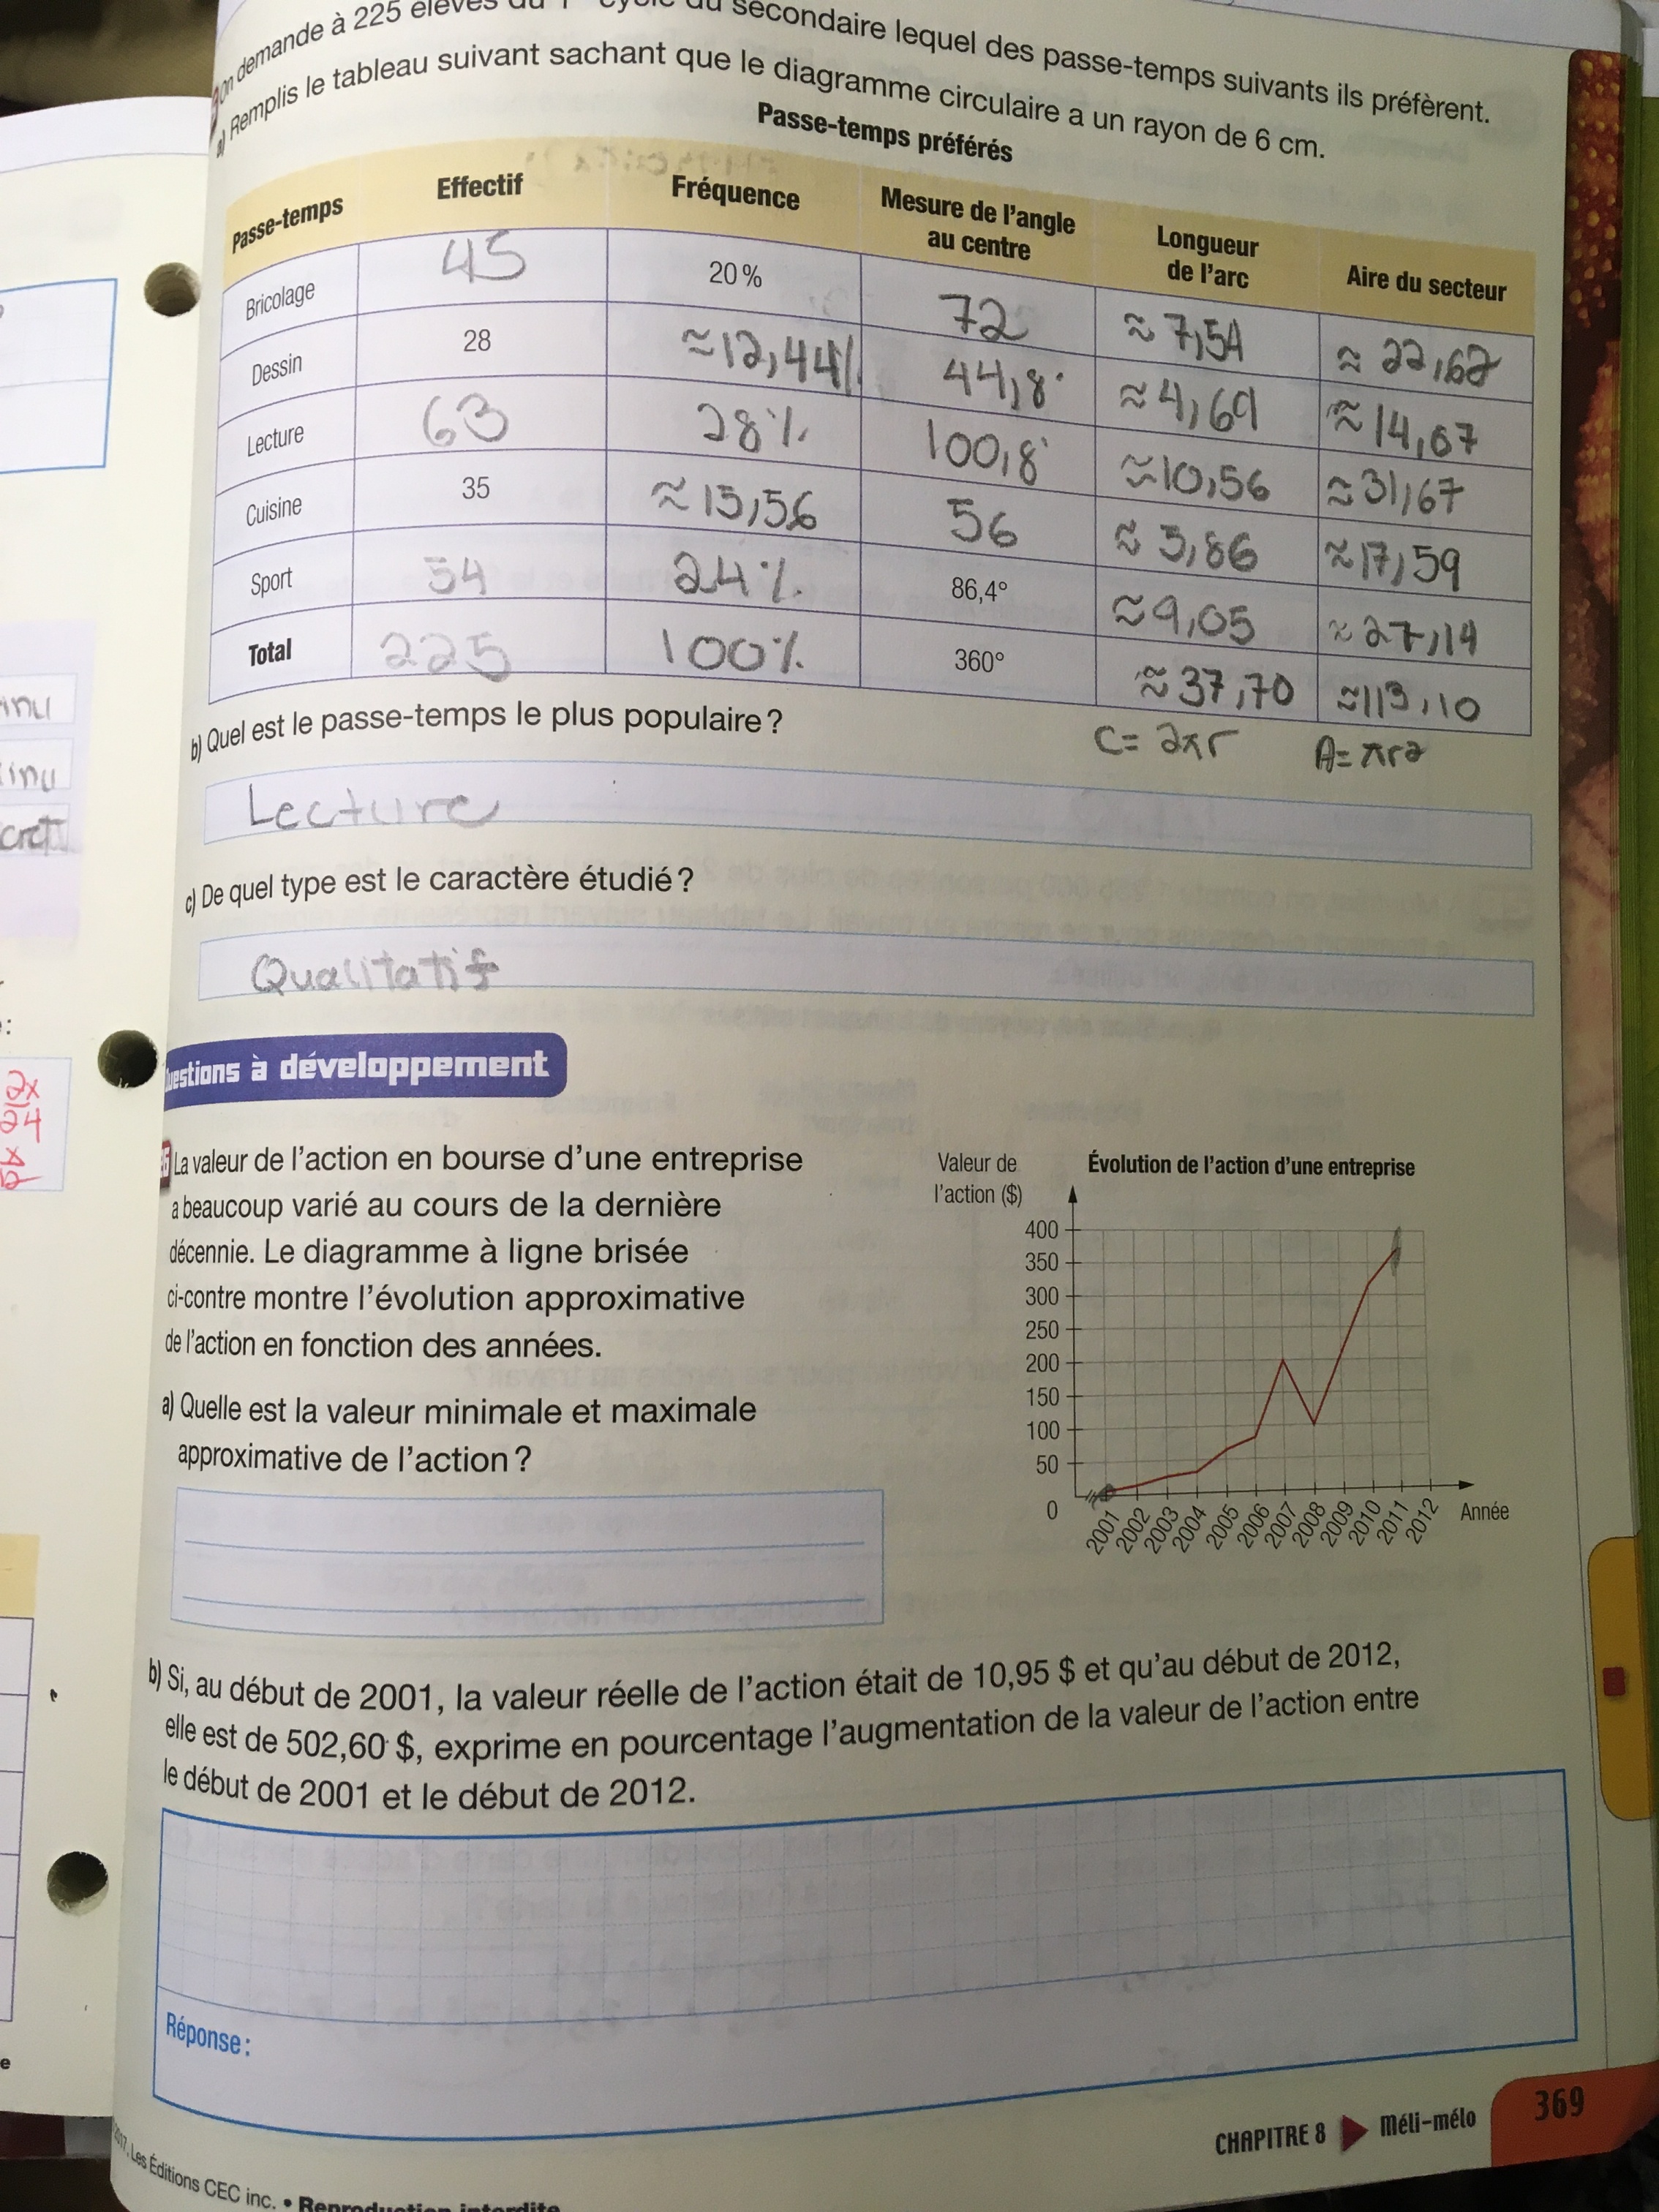 On demande à 225 élèves du 1 cycle du secondaire lequel des passe-temps suivants ils préfèrent.
a) Remplis le tableau suivant sachant que le diagramme circulaire a un rayon de 6 cm.
Passe-temps préférés
Passe-temps Effectif Fréquence Mesure de l'angle au centre Longueur de l'arc Aire du secteur
Bricolage 45 20 % 72 ≈ 7,54 ≈ 22,62
Dessin 28 ≈12,44% 44,8° ≈ 4,69 ≈ 14,07
Lecture 63 28% 100,8° ≈10,56 ≈31,67
Cuisine 35 ≈15,56 56 ≈ 5,86 ≈17,59
Sport 54 24% 86,4° ≈9,05 ≈27,14
Total 225 100% 360° ≈37,70 ≈113,10
C= 2πr A= πr2
b) Quel est le passe-temps le plus populaire ?
Lecture
c) De quel type est le caractère étudié ?
Qualitatif
inu
inu
cret
:
2x
24
x
e
uestions à développement
La valeur de l'action en bourse d'une entreprise
a beaucoup varié au cours de la dernière
décennie. Le diagramme à ligne brisée
ci-contre montre l'évolution approximative
de l'action en fonction des années.
a) Quelle est la valeur minimale et maximale
approximative de l'action ?
Valeur de
l'action ($)
Évolution de l'action d'une entreprise
400
350
300
250
200
150
100
50
0
2001 2002 2003 2004 2005 2006 2007 2008 2009 2010 2011 2012
Année
b) Si, au début de 2001, la valeur réelle de l'action était de 10,95 $ et qu'au début de 2012,
elle est de 502,60 $, exprime en pourcentage l'augmentation de la valeur de l'action entre
le début de 2001 et le début de 2012.
Réponse :
CHAPITRE 8 ▶ Méli-mélo
369
2017, Les Éditions CEC inc. • Reproduction interdite